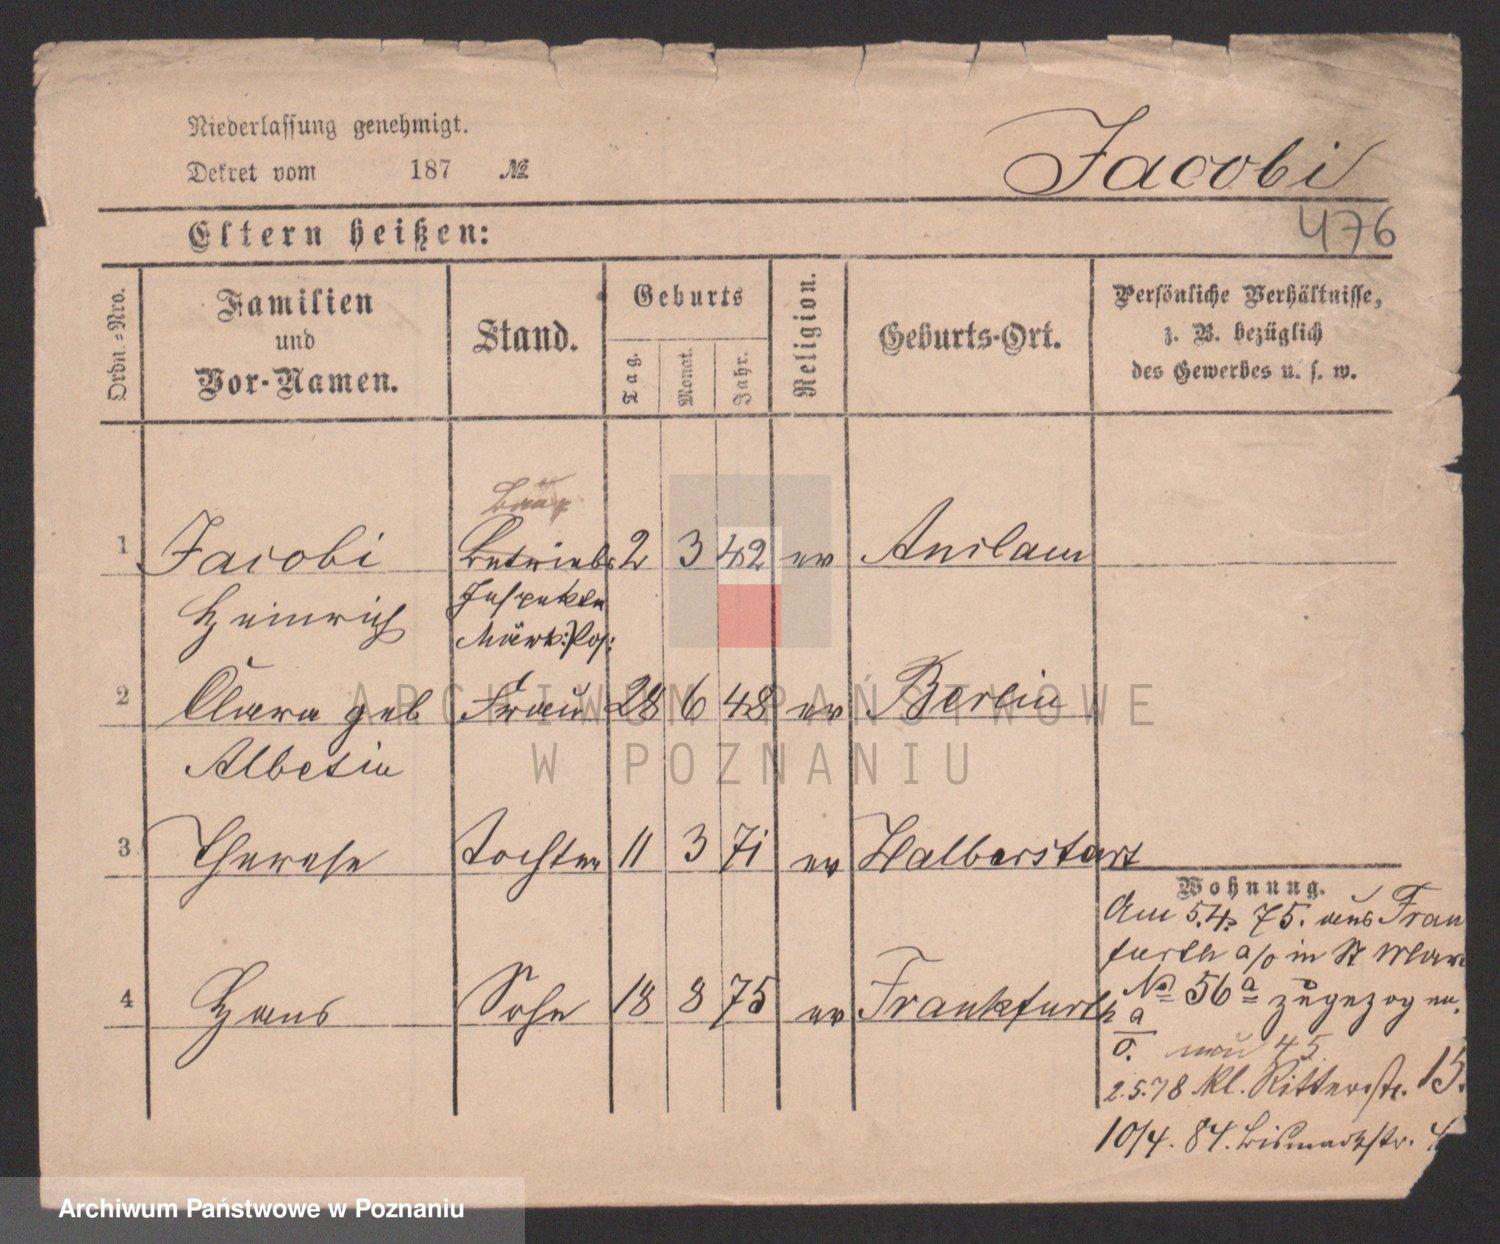 Niederlassung genehmigt.
Dekret vom 187 №
Jacobi
476
Eltern heißen:
Ordn.-Nro.
Familien
und
Vor-Namen.
Stand.
Geburts
Tag.
Monat.
Jahr.
Religion.
Geburts-Ort.
Persönliche Verhältnisse,
z. B. bezüglich
des Gewerbes u. s. w.
1 Jacobi Betriebs 2 3 42 ev Anclam
Heinrich Inspektor
Märk: Pos:
2 Clara geb Frau 28 6 48 ev Berlin
Albetin
3 Therese Tochter 11 3 71 ev Halberstadt
Wohnung.
Am 5.4. 75. aus Fran
furth a/o in St Mar
No 56a zugezogen.
4 Hans Sohn 18 8 75 ev Frankfurth a
O. neu 45
2.5.78 Kl. Ritterstr. 15.
10/4. 84. Bismarckstr. 4
ARCHIWUM PAŃSTWOWE
W POZNANIU
Archiwum Państwowe w Poznaniu